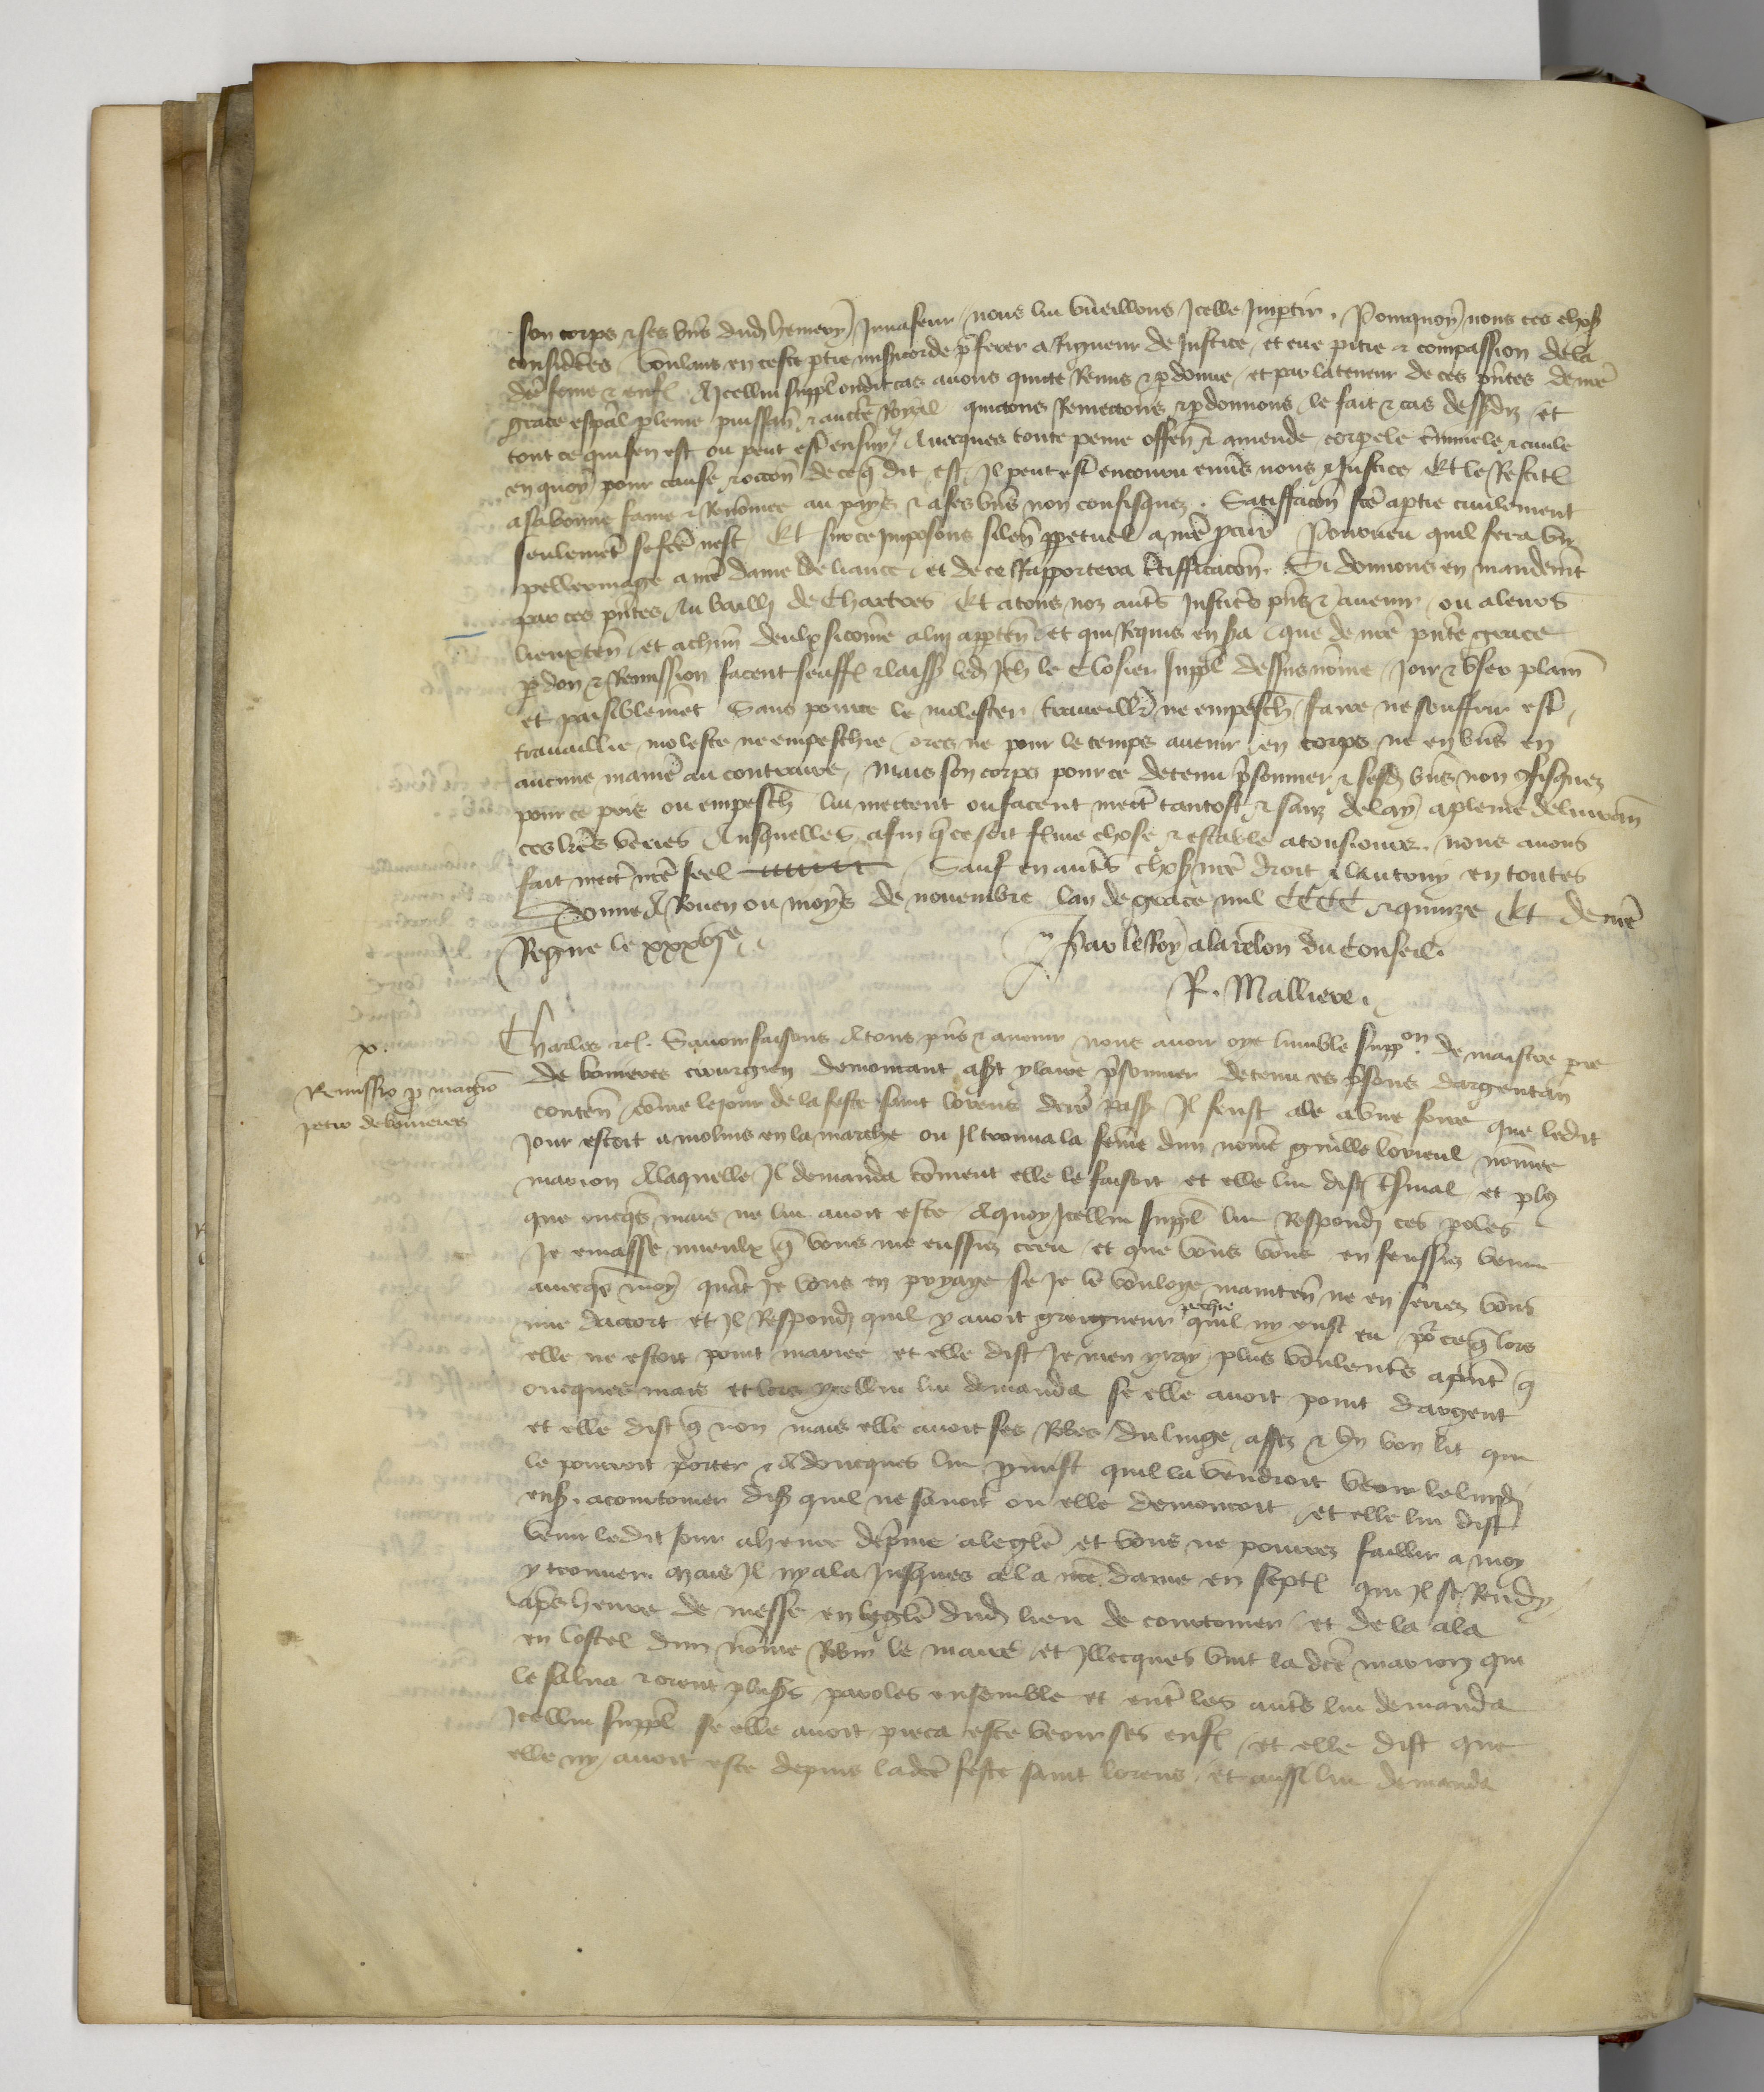 son corps et ses bn̄s dud hemery Jmaseur nous lui vueillons Jcelle Jmpartir. Pourquoy nous ces choses
considerēs voulans en ceste ptie misicorde p̄ferer a Rigueur de Justice et eue pitie et compassion de la
dce feme et enf̄ A Jcellui suppl̄ ou dit cas avons quitte Remis et pdonne et par la teneur de ces pn̄tes de nrē
grace esp̄al pleine puissan̄ et auctē Royal quictons Remectons et pdonnons le fait et cas dessusdiz et
tout ce qui sen est ou peut estr̄ ensuy Avecques toute peine offen̄ et amende corpele c̄minele et civile
en quoy pour cause et occōn de ce q̄ dit est Jl peut estr̄ encouru envs̄ nous et Justice Et le Restit
a sa bonne fame et Renōmee au pays et a ses bn̄s non confisquez. Satisfacōn fc̄e a ptie civilement
seulemēt se fc̄e nest Et sur ce Jmposons silen̄ ppetuel a nrē pcur̄ Pourveu quil fera vn
pellerinage a nrē dame de liance et de ce Rapportera c̄tifficacōn. Si donnons en mandemēt
par ces pn̄tes Au bailli de Chartres Et a tous noz autr̄s Justic̄s pn̄s et avenir ou a leurs
lieuxten̄ et a chūn deulx sicōme a luy apptēn et qui Requis en sa que de nrē pn̄te grace
pdon et Remission facent seuff̄ et laiss led Jeh̄ le Closier suppl̄ dessus nōme Joir et vser plain̄
et paisiblemēt Sans pour ce le molester travaillr̄ ne empesch̄ faire ne souffrir estr̄
travaillie moleste ne empeschie ores ne pour le temps avenir en corps ne en bn̄s en
aucune manīe au contraire, Mais son corps pour ce detenu p̄sonnier et sesd bn̄s non cfisquez
pour ce pris ou empesch̄ lui mectent ou facent mectr̄ tantost et sanz delay a pleine delivran̄
ces lrēs veues Ausquelles afin q̄ ce soit fe͞rme chose et estable a tousjours. nous avons
fait mectr̄ nrē seel Sauf en autr̄s choses nrē droit et lautruy en toutes
Donne A Rouen ou moys de novembre lan de grace mil CCCC et quinze Et de nrē
Regne le xxxvje
Par le Roy a la relon du Conseil.
R. Malliere.
x.
Remissio p magr̄o
petro de bomeres
Charles etc. Savoir faisons A tous pn̄s et avenir nous avoir oye lumble suppon. de maistre pre
de bomeres cirurgien demourant a st ylaire p̄sonnier detenu es p̄sons dargentan
conten̄ cōme le jour de la feste saint lorens derr̄ passe Jl feust ale a vne foire que ledit
jour estoit a molins en la marche ou Jl trouva la fēme dun nōme guille lorieul nōmee
marion A laquelle Jl demanda cōment elle le faisoit et elle lui dist t̄smal et pl͞s
que oncqs̄ mais ne lui avoit este A quoy Jcellui suppl̄ lui Respond ces poles
Je emasse mieulx q̄ vous me eussiez creu et que vous vous en feussiez venue
avecqs̄ moy quāt Je vous en pryaye se Je le vouloye mainten̄ ne en seriez vous
mie dacort et Jl Respond quil y avoit greigneur pechie quil ny eust eu po͞r ce q̄ lors
elle ne estoit point mariee et elle dist Je men yray plus voulentr̄s apn̄t q̄
oncques mais et lors ycellui lui demanda se elle avoit point dargent
et elle dist q̄ non mais elle avoit ses Robes du linge assez et vn bon lit qui
le pourroit porter et Adoncques lui pmist quil la vendroit veoir le lundi
ens. a courtomer dis quil ne savoit ou elle demouroit et elle lui dist
venir ledit jour a heure de p̄me a leglē et vous ne pourrez faillir a moy
y trouver Mais Jl ny ala Jusques a la nrē dame en sept̄ que Jl se Rendy
aps̄ heure de messe en leglē dud lieu de courtomer et de la ala
en lostel dun nōme Robin le maire et Jllecques vint la dcē marion qui
le salua et orent plus̄rs paroles ensemble et entr̄ les autr̄s lui demanda
Jcellui suppl̄ se elle avoit pieca este veoir ses enf̄ et elle dist que
elle ny avoit este depuis la dcē feste saint lorens et aussi lui demanda